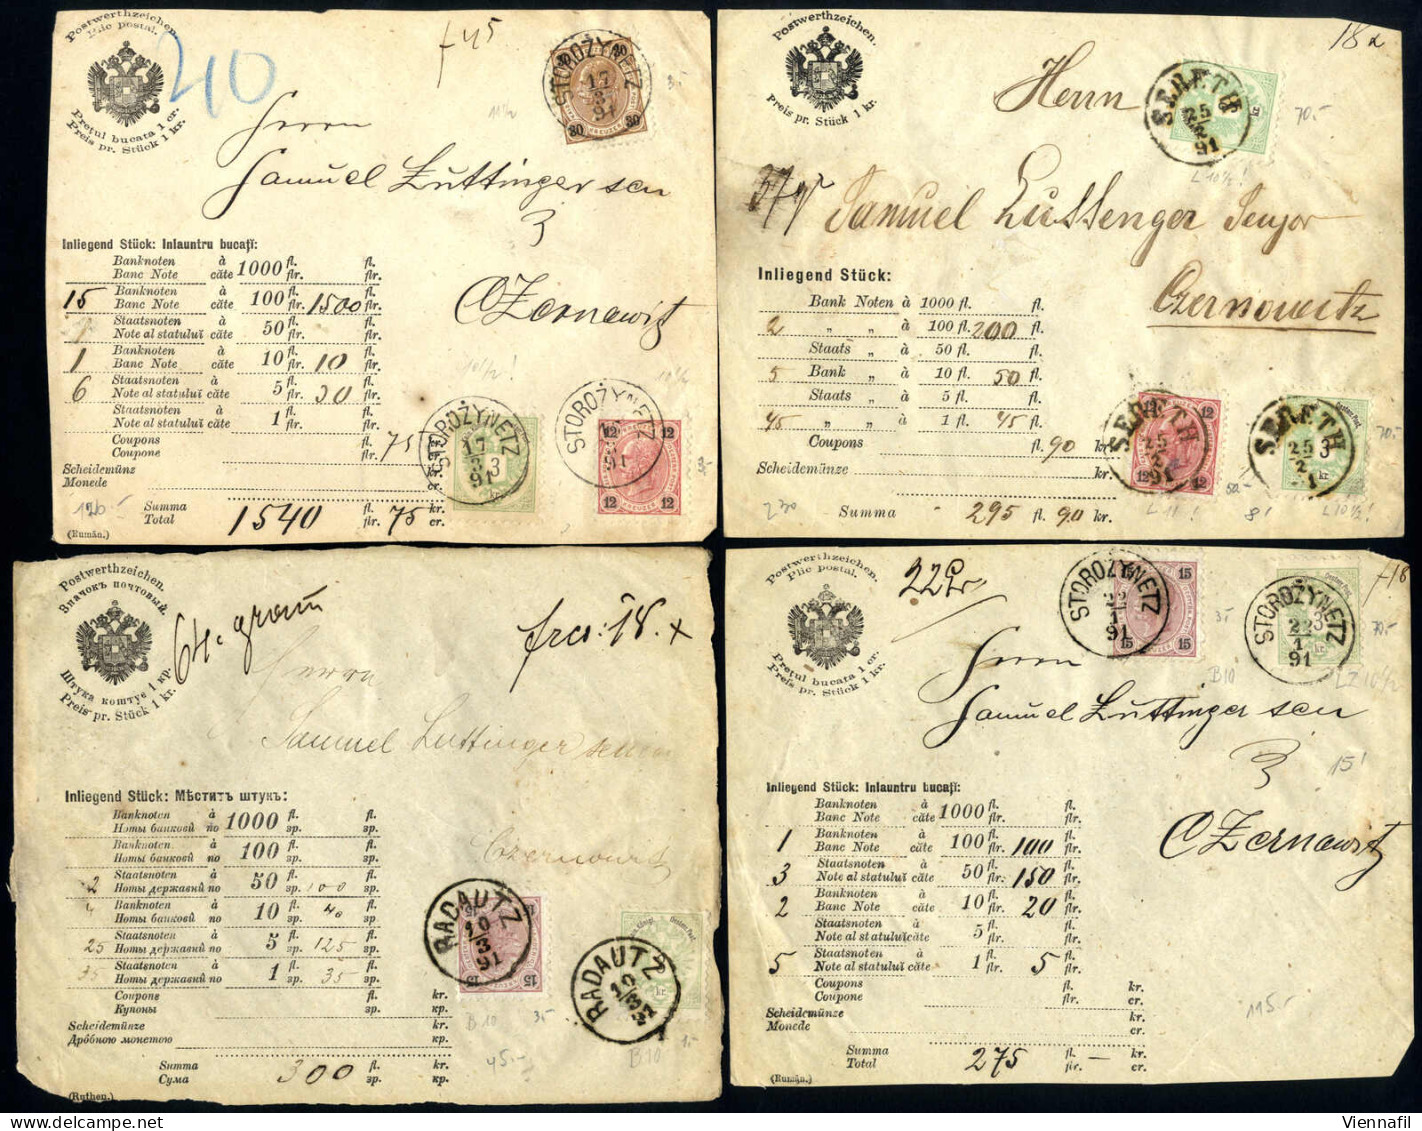 Postwerthzeichen.
Plic postal.
Prețul bucata 1 cr.
Preis pr. Stück 1 kr.
210
f 45
STOROŻYNETZ
17
3
91
30 30
KREUZER
Herrn
Samuel Luttinger sen
3
Czernowitz
Inliegend Stück: Inlauntru bucațĭ:
Banknoten à 1000 fl. fl.
Banc Note câte flr. flr.
15 Banknoten à 100 fl. 1500 fl.
Banc Note câte flr. flr.
Staatsnoten à 50 fl. fl.
Note al statuluĭ câte flr. flr.
1 Banknoten à 10 fl. 10 fl.
Banc Note câte flr. flr.
6 Staatsnoten à 5 fl. 30 fl.
Note al statuluĭ câte flr. flr.
Staatsnoten à 1 fl. fl.
Note al statuluĭ câte flr. flr.
Coupons fl. 75
Coupone flr.
Scheidemünz
Monede
Summa 1540 fl. 75 kr.
Total flr. cr.
(Rumän.)
STOROŻYNETZ
17
3
91
3
STOROŻYNETZ
91
12 12
12 KREUZER 12
Postwerthzeichen.
Preis pr. Stück 1 kr.
18
Herrn
SERETH
25
2
91
70.-
L 10½!
37gr
Samuel Luttenger Senjor
Czernowitz
Inliegend Stück:
Bank Noten à 1000 fl. fl.
2 „ „ à 100 fl. 200 fl.
Staats „ à 50 fl. fl.
5 Bank „ à 10 fl. 50 fl.
Staats „ à 5 fl. fl.
45 „ „ à 1 fl. 45 fl.
Coupons fl. 90 kr.
Scheidemünze kr.
Summa 295 fl. 90 kr.
230
SERETH
25
2
91
12 12
12 12
L 11!
SERETH
25
2
3
kr
70.-
L 10½!
Postwerthzeichen.
Значокъ почтовый.
Штука коштує 1 кр.
Preis pr. Stück 1 kr.
64. gram
frco: 18. x
Herrn
Samuel Luttinger senior
Inliegend Stück: Мѣстить штукъ:
Banknoten à 1000 fl. fl.
Ноты банковй по зр. зр.
Banknoten à 100 fl. fl.
Ноты банковй по зр. зр.
2 Staatsnoten à 50 fl. 100 fl.
Ноты державнй по зр. зр.
4 Banknoten à 10 fl. 40 fl.
Ноты банковй по зр. зр.
25 Staatsnoten à 5 fl. 125 fl.
Ноты державнй по зр. зр.
35 Staatsnoten à 1 fl. 35 fl.
Ноты державнй по зр. зр.
Coupons fl. kr.
Купоны зр. кр.
Scheidemünze kr.
Дрôбною монетою кр.
Summa 300 fl. kr.
Сума зр. кр.
(Ruthen.)
RADAUTZ
10
3
91
15 15
B 10
3.-
45.-
RADAUTZ
10
3
kr
B10
1.-
Postwerthzeichen.
Plic postal.
Prețul bucata 1 cr.
Preis pr. Stück 1 kr.
22 Gr
STOROŻYNETZ
22
1
91
15 15
15 15
3.-
B10
STOROŻYNETZ
22
1
91
3
f 18
70.-
LZ 10½
Herrn
Samuel Luttinger sen
3
15!
Czernowitz
Inliegend Stück: Inlauntru bucațĭ:
Banknoten à 1000 fl. fl.
Banc Note câte flr. flr.
1 Banknoten à 100 fl. 100 fl.
Banc Note câte flr. flr.
3 Staatsnoten à 50 fl. 150 fl.
Note al statuluĭ câte flr. flr.
2 Banknoten à 10 fl. 20 fl.
Banc Note câte flr. flr.
Staatsnoten à 5 fl. fl.
Note al statuluĭ câte flr. flr.
5 Staatsnoten à 1 fl. 5 fl.
Note al statuluĭ câte flr. flr.
Coupons fl. kr.
Coupone flr. cr.
Scheidemünze kr.
Monede cr.
115.-
Summa 275 fl. — kr.
Total flr. cr.
(Rumän.)
Viennafil